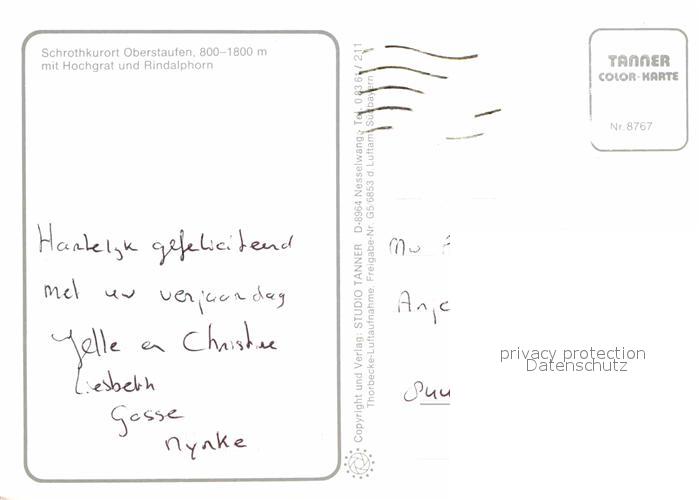 Schrothkurort Oberstaufen, 800–1800 m
mit Hochgrat und Rindalphorn
Hartelyk gefeliciteerd
met uw verjaardag
Jelle en Christine
Liesbeth
Gosse
Nynke
Copyright und Verlag: STUDIO TANNER D-8964 Nesselwang, Tel. 08361/211
Thorbecke-Luftaufnahme, Freigabe-Nr. G5/6853 d. Luftamt Südbayern
TANNER
COLOR-KARTE
Nr. 8767
privacy protection
Datenschutz